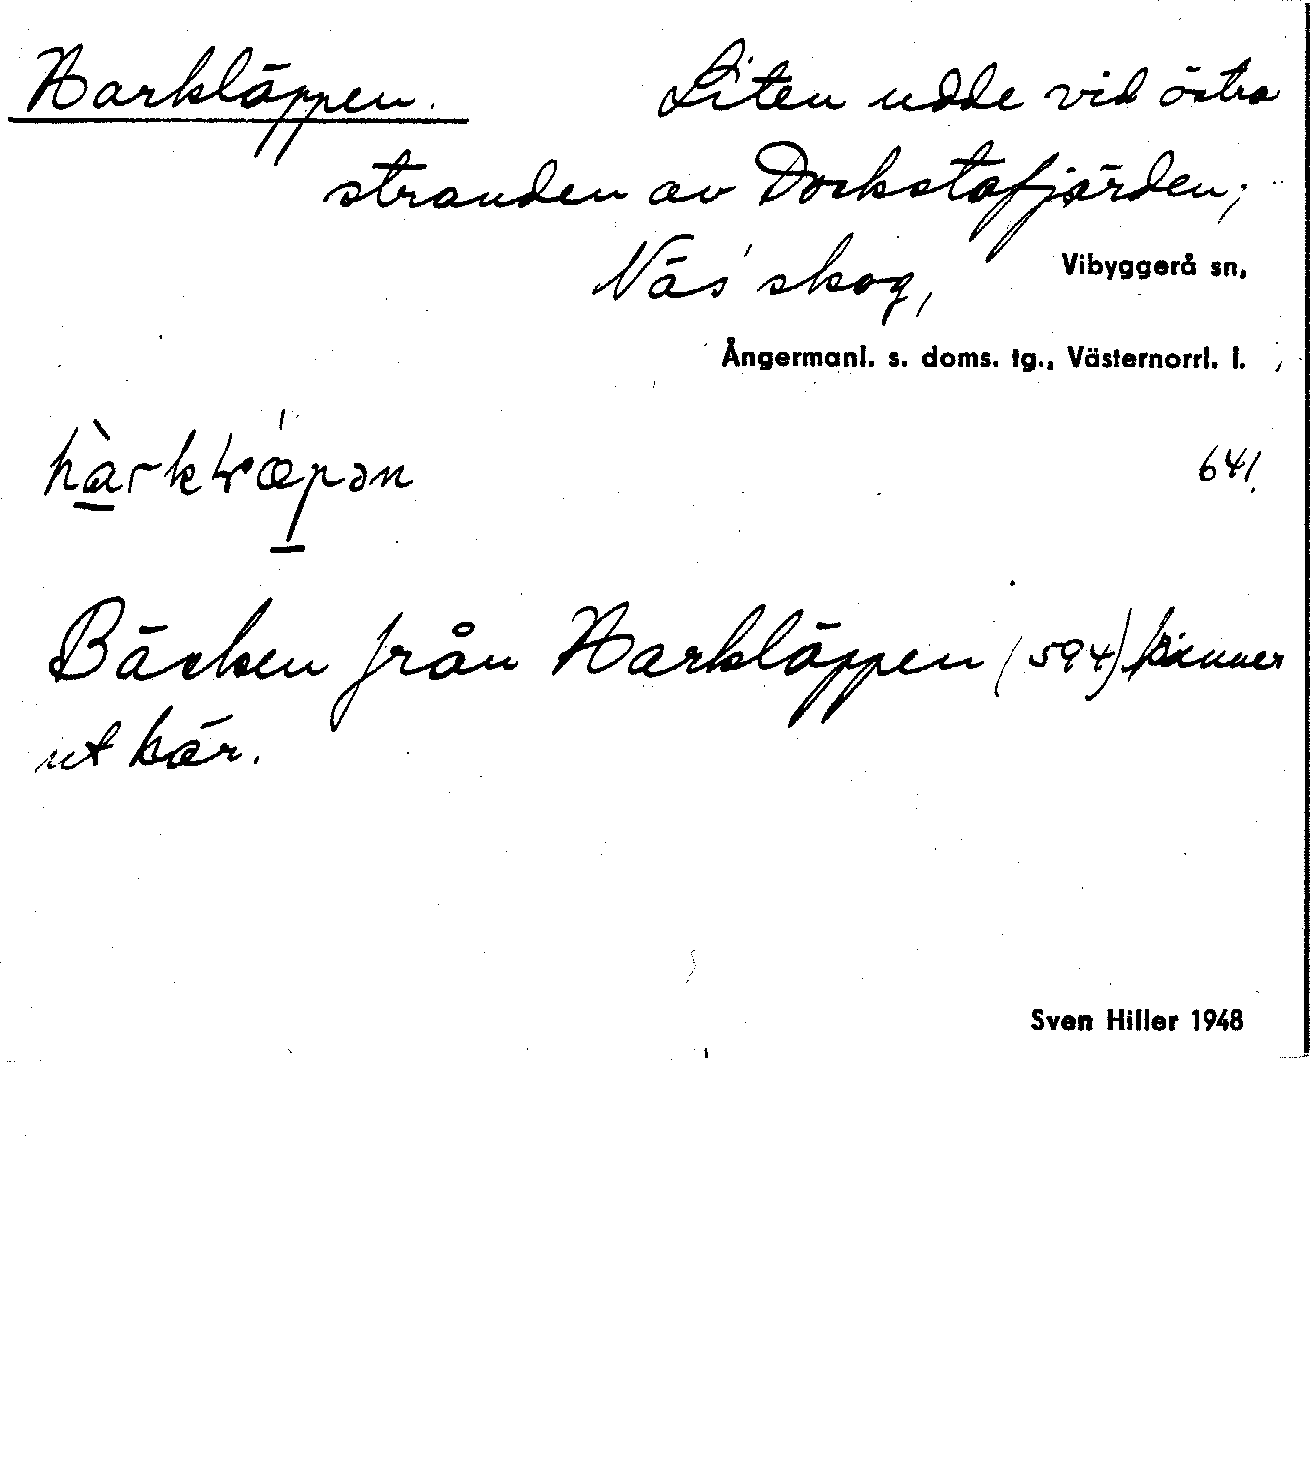 Harkläppen. Liten udde vid östra
stranden av Dockstafjärden;
Näs' skog, Vibyggerå sn,
Ångermanl. s. doms. tg., Västernorrl. l.
641.
Bäcken från Harkläppen (594) rinner
ut här.
Sven Hiller 1948